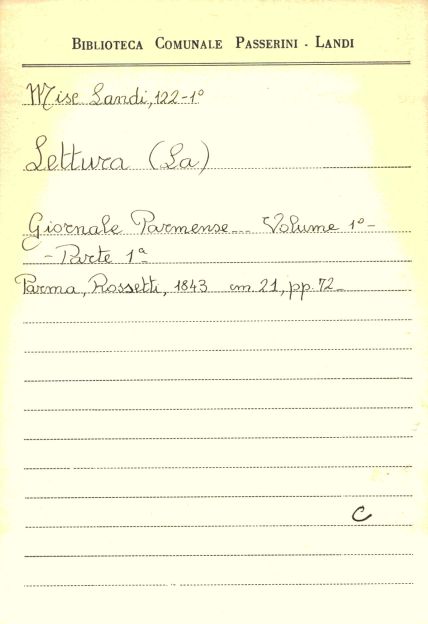 BIBLIOTECA COMUNALE PASSERINI - LANDI
Misc Landi, 122-1º
Lettura (La)
Giornale Parmense... Volume 1º-
- Parte 1ª
Parma, Rossetti, 1843 cm 21, pp. 72-
C